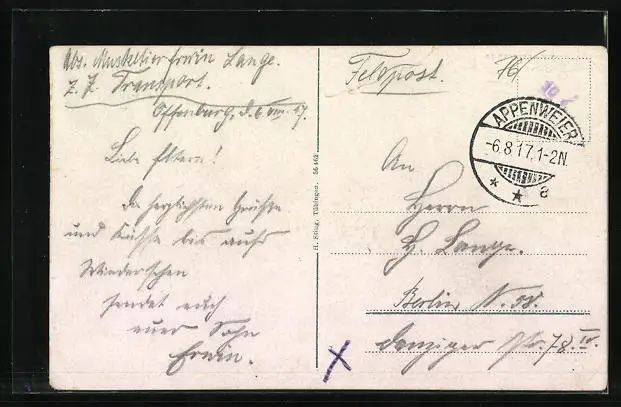 Abs. Musketier Erwin Lange.
z. Z. Transport.
Offenburg, d. 6. VIII. 17.
Liebe Eltern!
Die herzlichsten Grüße
und Küsse bis aufs
Wiedersehen
sendet euch
euer Sohn
Erwin.
H. Sting, Tübingen. 56 462
Feldpost.
APPENWEIER
-6.8.17.1-2N.
* * a
An
Herrn
H. Lange.
Berlin N.
Danziger Str. 78 IV.
X